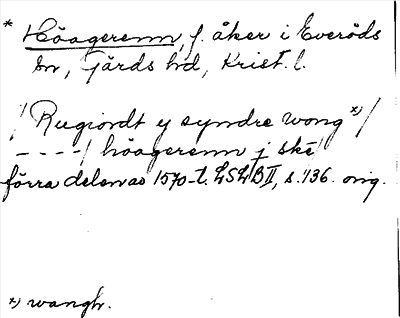 * Höagerenn, f. åker i Everöds
sn, Gärds hd, Krist. l.
/ Rugiordt y syndre wong *) /
- - - - / höagerenn j ske /
förra delen av 1570-t. LSLB II, s. 136. orig.
*) wangh.